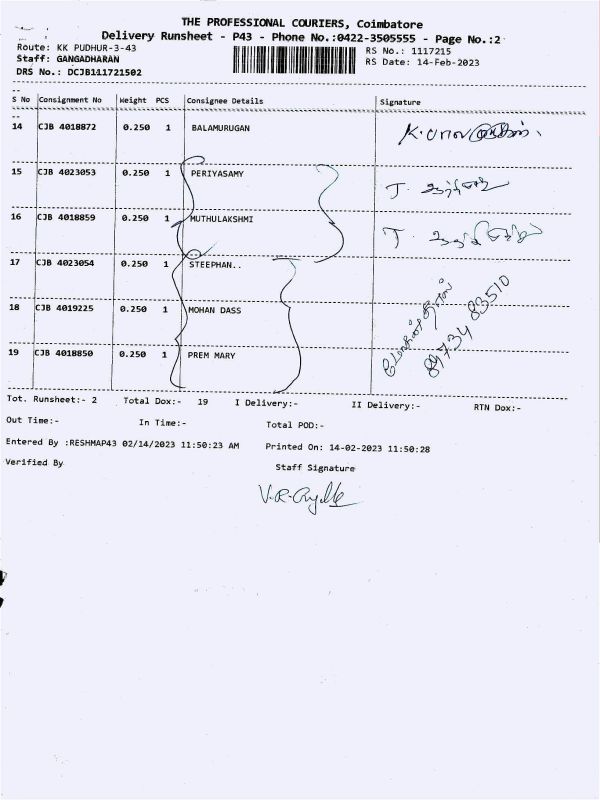 THE PROFESSIONAL COURIERS, Coimbatore
Delivery Runsheet - P43 - Phone No.:0422-3505555 - Page No.:2
Route: KK PUDHUR-3-43
RS No.: 1117215
Staff: GANGADHARAN
RS Date: 14-Feb-2023
DRS No.: DCJB111721502
S No Consignment No Weight PCS Consignee Details Signature
14 CJB 4018872 0.250 1 BALAMURUGAN
15 CJB 4023053 0.250 1 PERIYASAMY
16 CJB 4018859 0.250 1 MUTHULAKSHMI
17 CJB 4023054 0.250 1 STEEPHAN..
18 CJB 4019225 0.250 1 MOHAN DASS
19 CJB 4018850 0.250 1 PREM MARY
89734 83510
Tot. Runsheet:- 2 Total Dox:- 19 I Delivery:- II Delivery:- RTN Dox:-
Out Time:- In Time:- Total POD:-
Entered By :RESHMAP43 02/14/2023 11:50:23 AM Printed On: 14-02-2023 11:50:28
Verified By Staff Signature